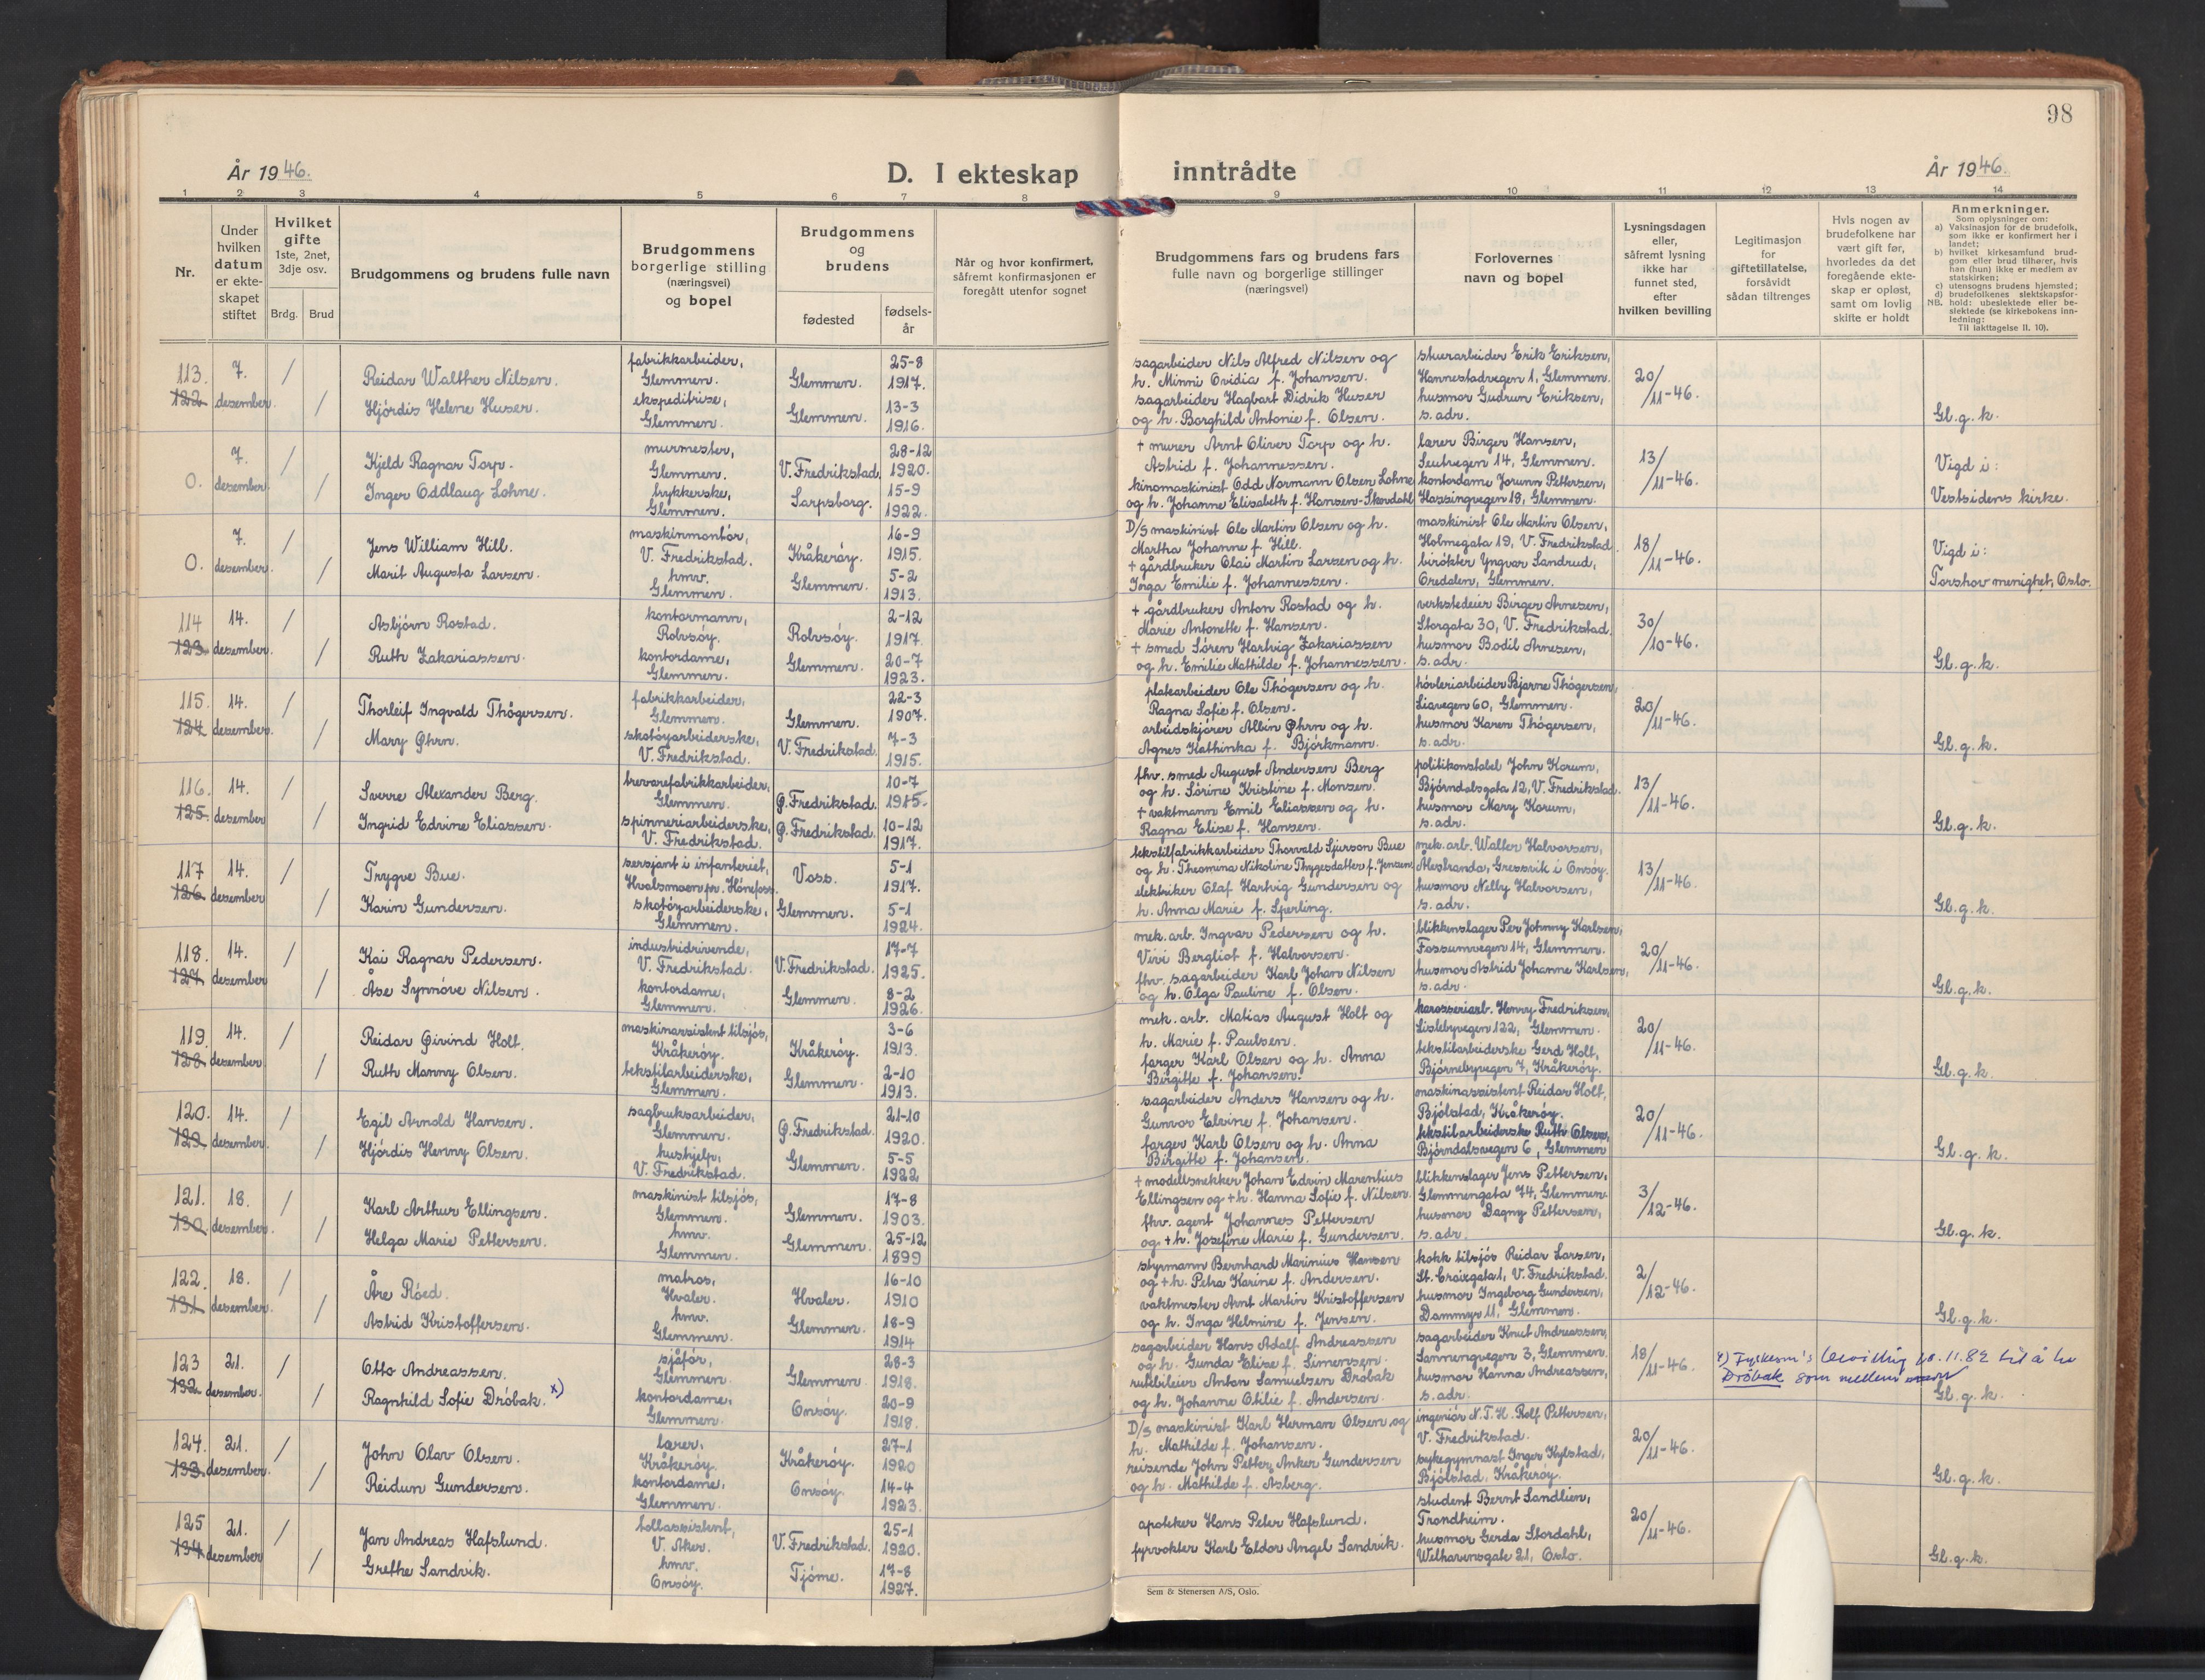 98
År 1946.
D. I ekteskap inntrådte
År 1946.
1 2 3 4 5 6 7 8 9 10 11 12 13 14
Nr.
Under hvilken datum er ekte-skapet stiftet
Hvilket gifte
1ste, 2net, 3dje osv.
Brdg. Brud
Brudgommens og brudens fulle navn
Brudgommens borgerlige stilling (næringsvei) og bopel
Brudgommens og brudens
fødested
fødsels-år
Når og hvor konfirmert, såfremt konfirmasjonen er foregått utenfor sognet
Brudgommens fars og brudens fars fulle navn og borgerlige stillinger (næringsvei)
Forlovernes navn og bopel
Lysningsdagen eller, såfremt lysning ikke har funnet sted, efter hvilken bevilling
Legitimasjon for giftetillatelse, forsåvidt sådan tiltrenges
Hvis nogen av brudefolkene har vært gift før, hvorledes da det foregående ekte-skap er opløst, samt om lovlig skifte er holdt
Anmerkninger.
Som oplysninger om:
a) Vaksinasjon for de brudefolk, som ikke er konfirmert her i landet;
b) hvilket kirkesamfund brud-gom eller brud tilhører, hvis han (hun) ikke er medlem av statskirken;
c) utensogns brudens hjemsted;
d) brudefolkenes slektskapsfor-hold: ubeslektede eller be-slektede (se kirkebokens inn-ledning:
NB.
Til iakttagelse II. 10).
113. 122 7. desember / /
Reidar Walther Nilsen.
Hjórdis Helene Huser.
fabrikkarbeider,
Glemmen.
ekspeditrise,
Glemmen.
Glemmen. 25-8 1917.
Glemmen. 13-3 1916.
sagarbeider Nils Alfred Nilsen og
h. Minni Ovidia f. Johansen.
sagarbeider Hagbart Didrik Huser
og h. Borghild Antonie f. Olsen.
stuerarbeider Erik Eriksen,
Hannestadvegen 1, Glemmen.
husmor Gudrun Eriksen,
s. adr.
20/11-46.
Gl.g.k.
0. 7. desember / /
Kjeld Ragnar Torp.
Inger Oddlaug Lohne.
murmester,
Glemmen.
trykkerske,
Glemmen.
V. Fredrikstad. 28-12 1920.
Sarpsborg. 15-9 1922.
+ murer Arnt Oliver Torp og h.
Astrid f. Johannessen.
kinomaskinist Odd Normann Olsen Lohne
og h. Johanne Elisabeth f. Hansen-Skovdahl
lærer Birger Hansen,
Seutvegen 14, Glemmen.
kontordame Jorunn Pettersen,
Hassingvegen 18, Glemmen.
13/11-46.
Vigd i:
Vestsidens kirke.
0. 7. desember / /
Jens William Hill.
Marit Augusta Larsen.
maskinmontör,
V. Fredrikstad.
hmv.
Glemmen.
Kråkeróy. 16-9 1915.
Glemmen. 5-2 1913.
D/S maskinist Ole Martin Olsen og h.
Martha Johanne f. Hill.
+ gårdbruker Olai Martin Larsen og h.
Inga Emilie f. Johannessen.
maskinist Ole Martin Olsen,
Holmegata 19, V. Fredrikstad.
birókter Yngvar Sandrud,
Oredalen, Glemmen.
18/11-46.
Vigd i:
Torshov menighet, Oslo.
114 123. 14. desember. / /
Asbjórn Rostad.
Ruth Zakariassen.
kontormann,
Rolvsóy.
kontordame,
Glemmen.
Rolvsóy. 2-12 1917.
Glemmen. 20-7 1923.
+ gårdbruker Anton Rostad og h.
Marie Antonette f. Hansen.
+ smed Sóren Hartvig Zakariassen
og h. Emilie Mathilde f. Johannessen.
verkstedeier Birger Arnesen,
Storgata 30, V. Fredrikstad.
husmor Bodil Arnesen,
s. adr.
30/10-46.
Gl.g.k.
115. 124 14. desember. / /
Thorleif Ingvald Thógersen.
Mary Øhrn.
fabrikkarbeider,
Glemmen.
skotóyarbeiderske,
V. Fredrikstad.
Glemmen. 22-3 1907.
V. Fredrikstad. 7-3 1915.
platearbeider Ole Thógersen og h.
Ragna Sofie f. Olsen.
arbeidskjórer Albin Øhrn og h.
Agnes Kathinka f. Bjórkmann.
hóvleriarbeider Bjarne Thógersen,
Liavegen 60, Glemmen.
husmor Karen Thógersen,
s. adr.
20/11-46.
Gl.g.k.
116. 125. 14. desember / /
Sverre Alexander Berg.
Ingrid Edvine Eliassen.
trevarefabrikkarbeider,
Glemmen.
spinneriarbeiderske,
V. Fredrikstad.
Ø. Fredrikstad. 10-7 1915.
Ø. Fredrikstad. 10-12 1917.
fhv. smed August Andersen Berg
og h. Sórine Kristine f. Monsen.
+ vaktmann Emil Eliassen og h.
Ragna Elise f. Hansen.
politikonstabel John Korum,
Bjórndalsgata 12, V. Fredrikstad.
husmor Mary Korum,
s. adr.
13/11-46.
Gl.g.k.
117 126. 14. desember / /
Trygve Bue.
Karin Gundersen.
sersjant i infanteriet,
Hvalsmoen pr. Hónefoss.
skotóyarbeiderske,
Glemmen.
Voss. 5-1 1917.
Glemmen. 5-1 1924.
tekstilfabrikkarbeider Thorvald Sjurson Bue
og h. Theomina Nikoline Thygesdatter f. Jensen.
elektriker Olaf Hartvig Gundersen og
h. Anna Marie f. Sperling.
mek. arb. Walter Halvorsen,
Ålestranda, Gressvik i Onsóy.
husmor Nelly Halvorsen,
s. adr.
13/11-46.
Gl.g.k.
118. 127 14. desember / /
Kai Ragnar Pedersen.
Åse Synnóve Nilsen.
industridrivende,
V. Fredrikstad.
kontordame,
Glemmen.
V. Fredrikstad. 17-7 1925.
Glemmen. 8-2 1926.
mek. arb. Ingvar Pedersen og h.
Vivi Bergliot f. Halvorsen.
fhv. sagarbeider Karl Johan Nilsen
og h. Olga Pauline f. Olsen.
blikkenslager Per Johnny Karlsen,
Fossumvegen 14, Glemmen.
husmor Astrid Johanne Karlsen,
s. adr.
20/11-46.
Gl.g.k.
119. 128. 14. desember. / /
Reidar Øivind Holt.
Ruth Manny Olsen.
maskinassistent tilsjós,
Kråkeróy.
tekstilarbeiderske,
Glemmen.
Kråkeróy. 3-6 1913.
Glemmen. 2-10 1913.
mek. arb. Matias August Holt og
h. Marie f. Paulsen.
farger Karl Olsen og h. Anna
Birgitte f. Johansen.
karosseriarb. Henry Fredriksen,
Lislebyvegen 122, Glemmen.
tekstilarbeiderske Gerd Holt,
Bjórnebyvegen 7, Kråkeróy.
20/11-46.
Gl.g.k.
120. 129. 14. desember. / /
Egil Arnold Hansen.
Hjórdis Henny Olsen.
sagbruksarbeider,
Glemmen.
hushjelp,
V. Fredrikstad.
Ø. Fredrikstad. 21-10 1920.
Glemmen. 5-5 1922
sagarbeider Anders Hansen og h.
Gunvor Elvine f. Johansen.
farger Karl Olsen og h. Anna
Birgitte f. Johansen.
maskinassistent Reidar Holt,
Bjólstad, Kråkeróy.
tekstilarbeiderske Ruth Olsen,
Bjórndalsvegen 6, Glemmen
20/11-46.
Gl.g.k.
121. 130 18. desember. / /
Karl Arthur Ellingsen.
Helga Marie Pettersen.
maskinist tilsjós,
Glemmen.
hmv.
Glemmen.
Glemmen. 17-8 1903.
Glemmen. 25-12 1899
+ modellsnekker Johan Edvin Marentius
Ellingsen og + h. Hanna Sofie f. Nilsen.
fhv. agent Johannes Pettersen
og + h. Josefine Marie f. Gundersen.
blikkenslager Jens Pettersen,
Glemmengata 74, Glemmen.
husmor Dagny Pettersen,
s. adr.
3/12-46.
Gl.g.k.
122. 131. 18. desember. / /
Åre Róed.
Astrid Kristoffersen.
matros,
Hvaler.
hmv.
Glemmen.
Hvaler. 16-10 1910
Glemmen. 18-9 1914
styrmann Bernhard Marinius Hansen
og + h. Petra Karine f. Andersen.
vaktmester Arnt Martin Kristoffersen
og h. Inga Helmine f. Jensen.
kokk tilsjós Reidar Larsen,
St. Croixgata 1, V. Fredrikstad.
husmor Ingeborg Gundersen,
Dammyr 11, Glemmen.
2/12-46.
Gl.g.k.
123 132. 21. desember. / /
Otto Andreassen.
Ragnhild Sofie Dróbak. x)
sjáfór,
Glemmen.
kontordame,
Glemmen.
Glemmen. 28-3 1918.
Onsóy. 20-9 1918.
sagarbeider Hans Adolf Andreassen
og h. Gunda Elise f. Simensen.
rutebileier Anton Samuelsen Dróbak
og h. Johanne Otilie f. Andersen.
sagarbeider Knut Andreassen,
Sannengvegen 3, Glemmen.
husmor Hanna Andreassen,
s. adr.
18/11-46.
x) Fylkesm's bevilling 18.11.82 til å ha
Dróbak som mellomnavn
Gl.g.k.
124. 133. 21. desember. / /
John Olav Olsen.
Reidun Gundersen.
lærer,
Kråkeróy.
kontordame,
Glemmen.
Kråkeróy. 27-1 1920
Onsóy. 14-4 1923.
D/S maskinist Karl Herman Olsen og
h. Mathilde f. Johansen.
reisende John Petter Anker Gundersen
og h. Mathilde f. Asberg.
ingeniór N.T.H. Rolf Pettersen,
V. Fredrikstad.
sykegymnast Inger Kylstad,
Bjólstad, Kråkeróy.
20/11-46.
Gl.g.k.
125 134 21. desember / /
Jan Andreas Hafslund.
Grethe Sandvik.
tollassistent,
V. Aker.
hmv.
Onsóy.
V. Fredrikstad. 25-1 1920.
Tjóme. 17-8 1927.
apoteker Hans Peter Hafslund.
fyrvokter Karl Eldor Angel Sandvik.
student Bernt Sandlien,
Trondheim.
husmor Gerda Stordahl,
Welhavensgate 21, Oslo.
20/11-46.
Gl.g.k.
Sem & Stenersen A/S, Oslo.